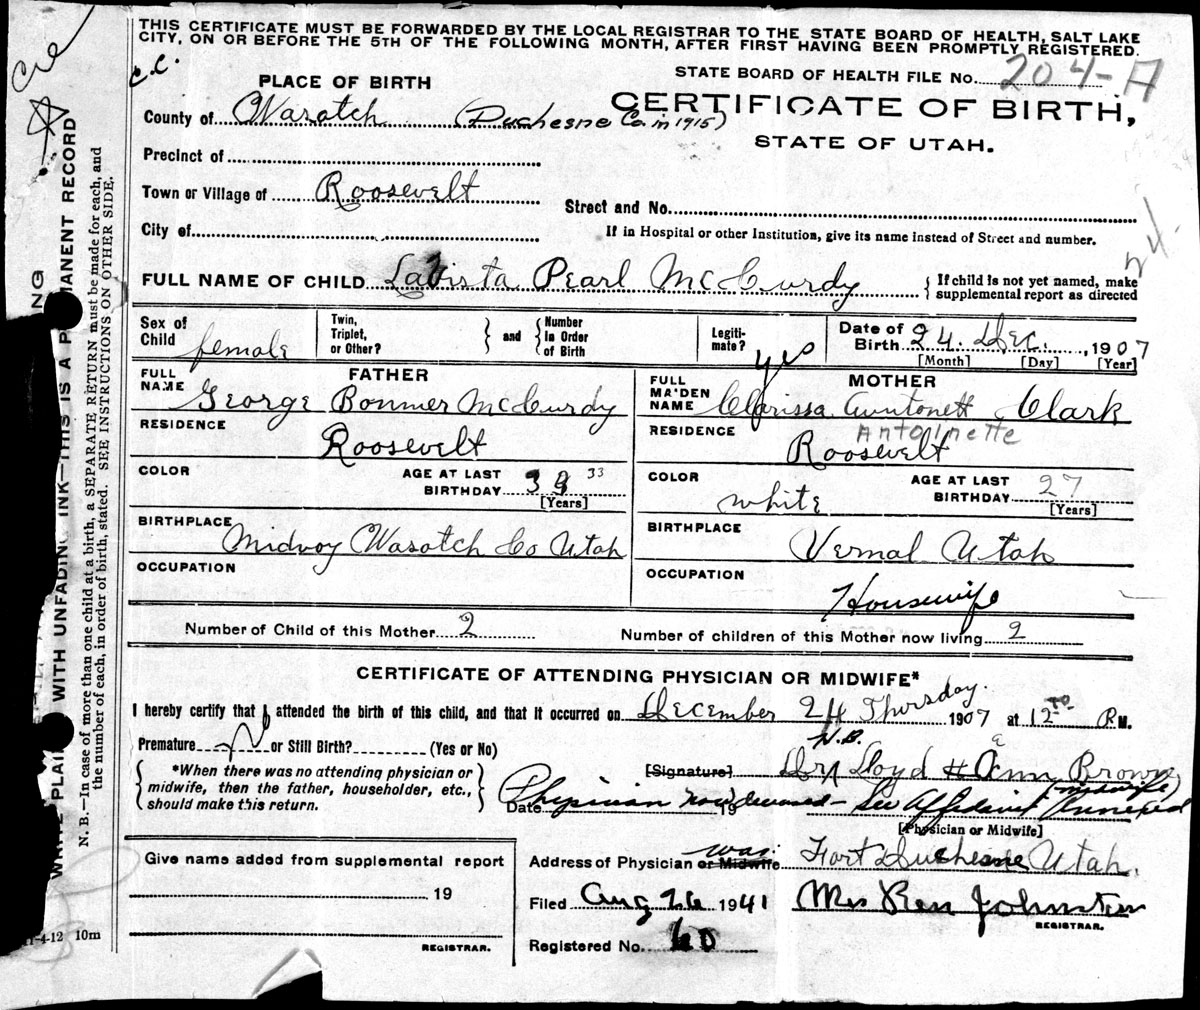 THIS CERTIFICATE MUST BE FORWARDED BY THE LOCAL REGISTRAR TO THE STATE BOARD OF HEALTH, SALT LAKE
CITY, ON OR BEFORE THE 5TH OF THE FOLLOWING MONTH, AFTER FIRST HAVING BEEN PROMPTLY REGISTERED.
c.c.
PLACE OF BIRTH
STATE BOARD OF HEALTH FILE No. 204-A
County of Wasatch (Duchesne Co. in 1915)
CERTIFICATE OF BIRTH,
STATE OF UTAH.
Precinct of
Town or Village of Roosevelt
Street and No.
City of
If in Hospital or other Institution, give its name instead of Street and number.
FULL NAME OF CHILD LaVista Pearl McCurdy
{ If child is not yet named, make
supplemental report as directed
Sex of
Child female
Twin,
Triplet,
or Other?
} and {
Number
in Order
of Birth
Legiti-
mate? yes
Date of
Birth 24. Dec. , 1907
[Month] [Day] [Year]
FULL
NAME
FATHER
George Bonner McCurdy
FULL
MAIDEN
NAME
MOTHER
Clarissa Auntonett Clark
Antoinette
RESIDENCE
Roosevelt
RESIDENCE
Roosevelt
COLOR
AGE AT LAST
BIRTHDAY 33
[Years]
COLOR
white
AGE AT LAST
BIRTHDAY 27
[Years]
BIRTHPLACE
Midway Wasatch Co Utah
BIRTHPLACE
Vernal Utah
OCCUPATION
OCCUPATION
Housewife
Number of Child of this Mother 2
Number of children of this Mother now living 2
CERTIFICATE OF ATTENDING PHYSICIAN OR MIDWIFE*
I hereby certify that I attended the birth of this child, and that it occurred on December 24 Thursday. 1907 at 12 P.M.
Premature no or Still Birth? (Yes or No)
{ *When there was no attending physician or
midwife, then the father, householder, etc.,
should make this return. }
N.B.
[Signature] Lloyd Ann Brown
(midwife)
Physician now deceased - See Affidavit Annexed
Date 19
[Physician or Midwife]
Give name added from supplemental report
19
REGISTRAR.
Address of Physician or Midwife was: Fort Duchesne Utah.
Filed Aug 26 1941 Mrs Ren Johnston
REGISTRAR.
Registered No. 60
11-4-12 10m
WITH UNFADING INK—THIS IS A PERMANENT RECORD
N. B.—In case of more than one child at a birth, a SEPARATE RETURN must be made for each, and
the number of each, in order of birth, stated. SEE INSTRUCTIONS ON OTHER SIDE.